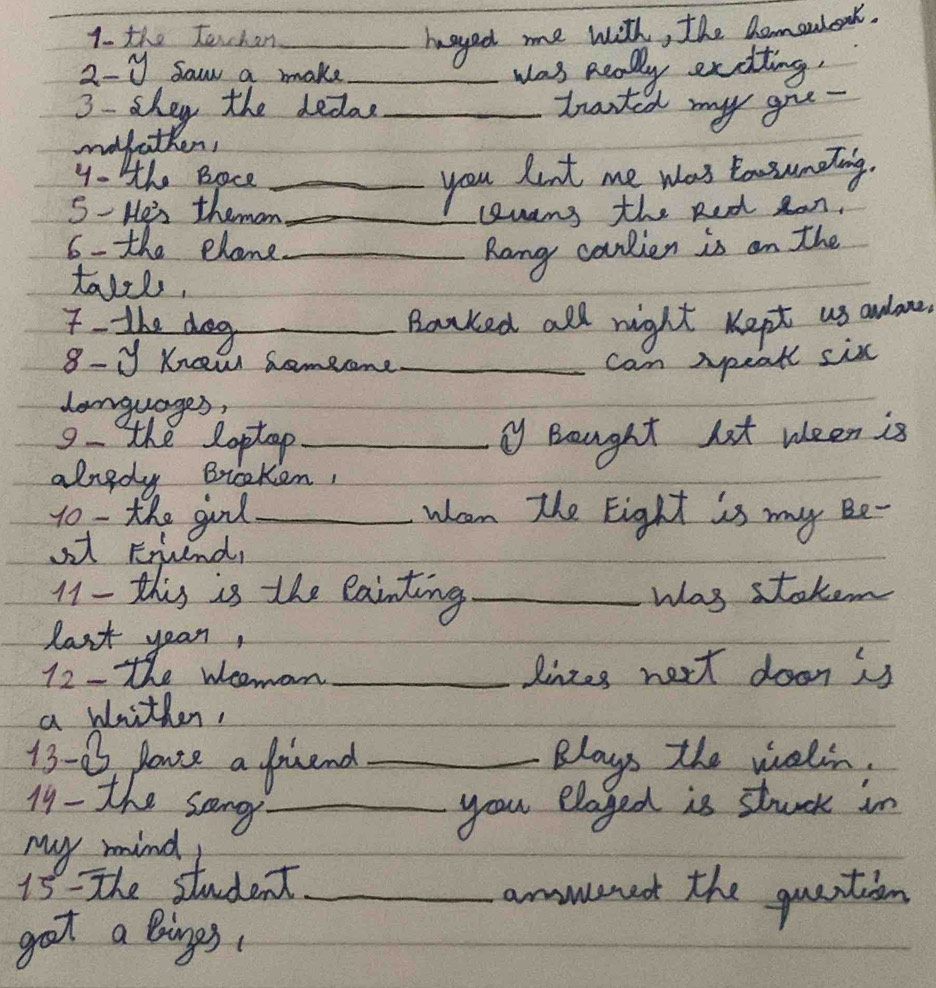 1- the Tercher ________ heyed me with, the homework.
2- I saw a make ________ was really exctting.
3- shey the dedae ________ trasted my gre-
ndfather,
4- the Boce ________ you lent me was Fasuneting.
5- He's theman ________ Owans the Red car.
6- the Phone ________ Rang earlier is on the
table,
7- the dog ________ Barked all night Kept us awlare.
8- I Know Someone ________ can speak six
languages,
9- the laptop ________ I Bought lst weer is
alredy Broeken,
10- the girl ________ wan the Eight is my Be-
st Friend,
11- this is the Painting ________ was stokem
last year,
12- The woeman ________ lives next door is
a Writher,
13- I have a friend ________ Plays the violin.
14- the song ________ you Played is struck in
my mind,
15- The student ________ answered the question
got a Pizes,